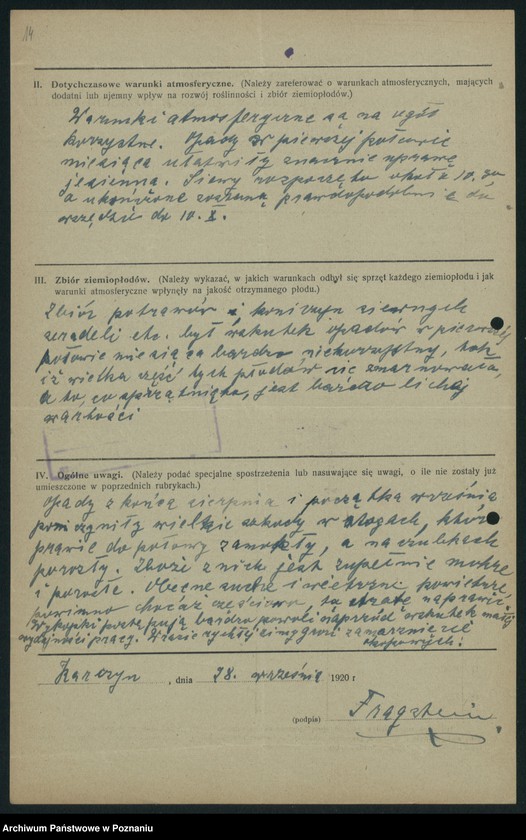 14
II. Dotychczasowe warunki atmosferyczne. (Należy zareferować o warunkach atmosferycznych, mających
dodatni lub ujemny wpływ na rozwój roślinności i zbiór ziemiopłodów.)
Warunki atmosferyczne są na ogół
korzystne. Opady w pierwszej połowie
miesiąca ułatwiły znacznie uprawę
jesienną. Siewy rozpoczęto około 10. go
a ukończone zostaną prawdopodobnie
wszędzie do 10. X.
III. Zbiór ziemiopłodów. (Należy wykazać, w jakich warunkach odbył się sprzęt każdego ziemiopłodu i jak
warunki atmosferyczne wpłynęły na jakość otrzymanego plodu.)
Zbiór potrawów i koniczyn
seradeli etc. był wskutek opadów w pierwszej
połowie miesiąca bardzo niekorzystny, tak
iż wielka część tych płodów się zmarnowała,
a to, co sprzątnięto, jest bardzo lichej
wartości
IV. Ogólne uwagi. (Należy podać specjalne spostrzeżenia lub nasuwające się uwagi, o ile nie zostały już
umieszczone w poprzednich rubrykach.)
Opady z końca sierpnia i początka września
poczyniły wielkie szkody w stogach, które
prawie do połowy zamokły, a na czubkach
porosły. Zboże z nich jest zupełnie mokre
i porosłe. Obecne suche i wietrzne powietrze
powinno chociaż częściowo tę stratę naprawić
Wykopki postępują bardzo powoli naprzód wskutek małej
wydajności pracy. W razie rychłej zimy grozi zamarznięcie
okopowych.
, dnia 28. września 1920 r
(podpis) Fragstein
Archiwum Państwowe w Poznaniu